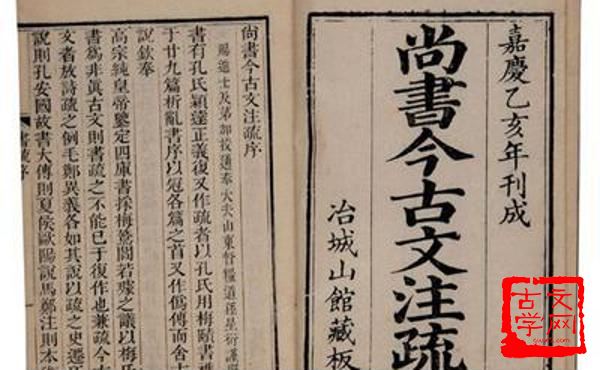 嘉慶乙亥年刊成
尚書今古文注疏
冶城山館藏板
尚書今古文注疏序
賜進士及第部校通奉大夫山東督糧道孫星衍譔
書有孔氏穎達正義復又作疏者以孔氏用梅賾書
于廿九篇析亂書序以冠各篇之首又作僞傳而舍古
說欽奉
高宗純皇帝鑒定四庫書採梅鷟閻若璩之議以梅氏
書爲非眞古文則書疏之不能已于復作也兼疏今古
文者放詩疏之例毛鄭異義各如其說以疏之史遷
說則孔安國故書大傳則夏侯歐陽說馬鄭注則本
書疏序
古文
学网